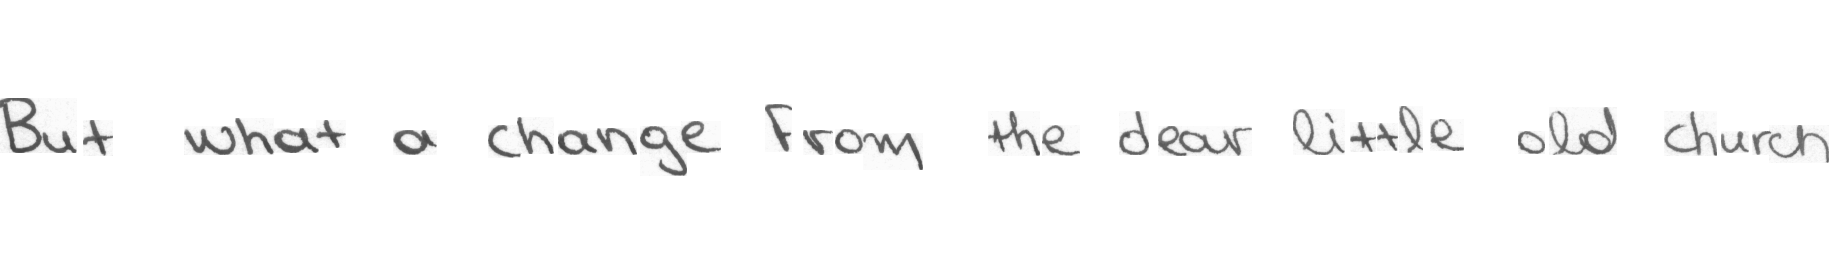 But what a change from the dear little old church